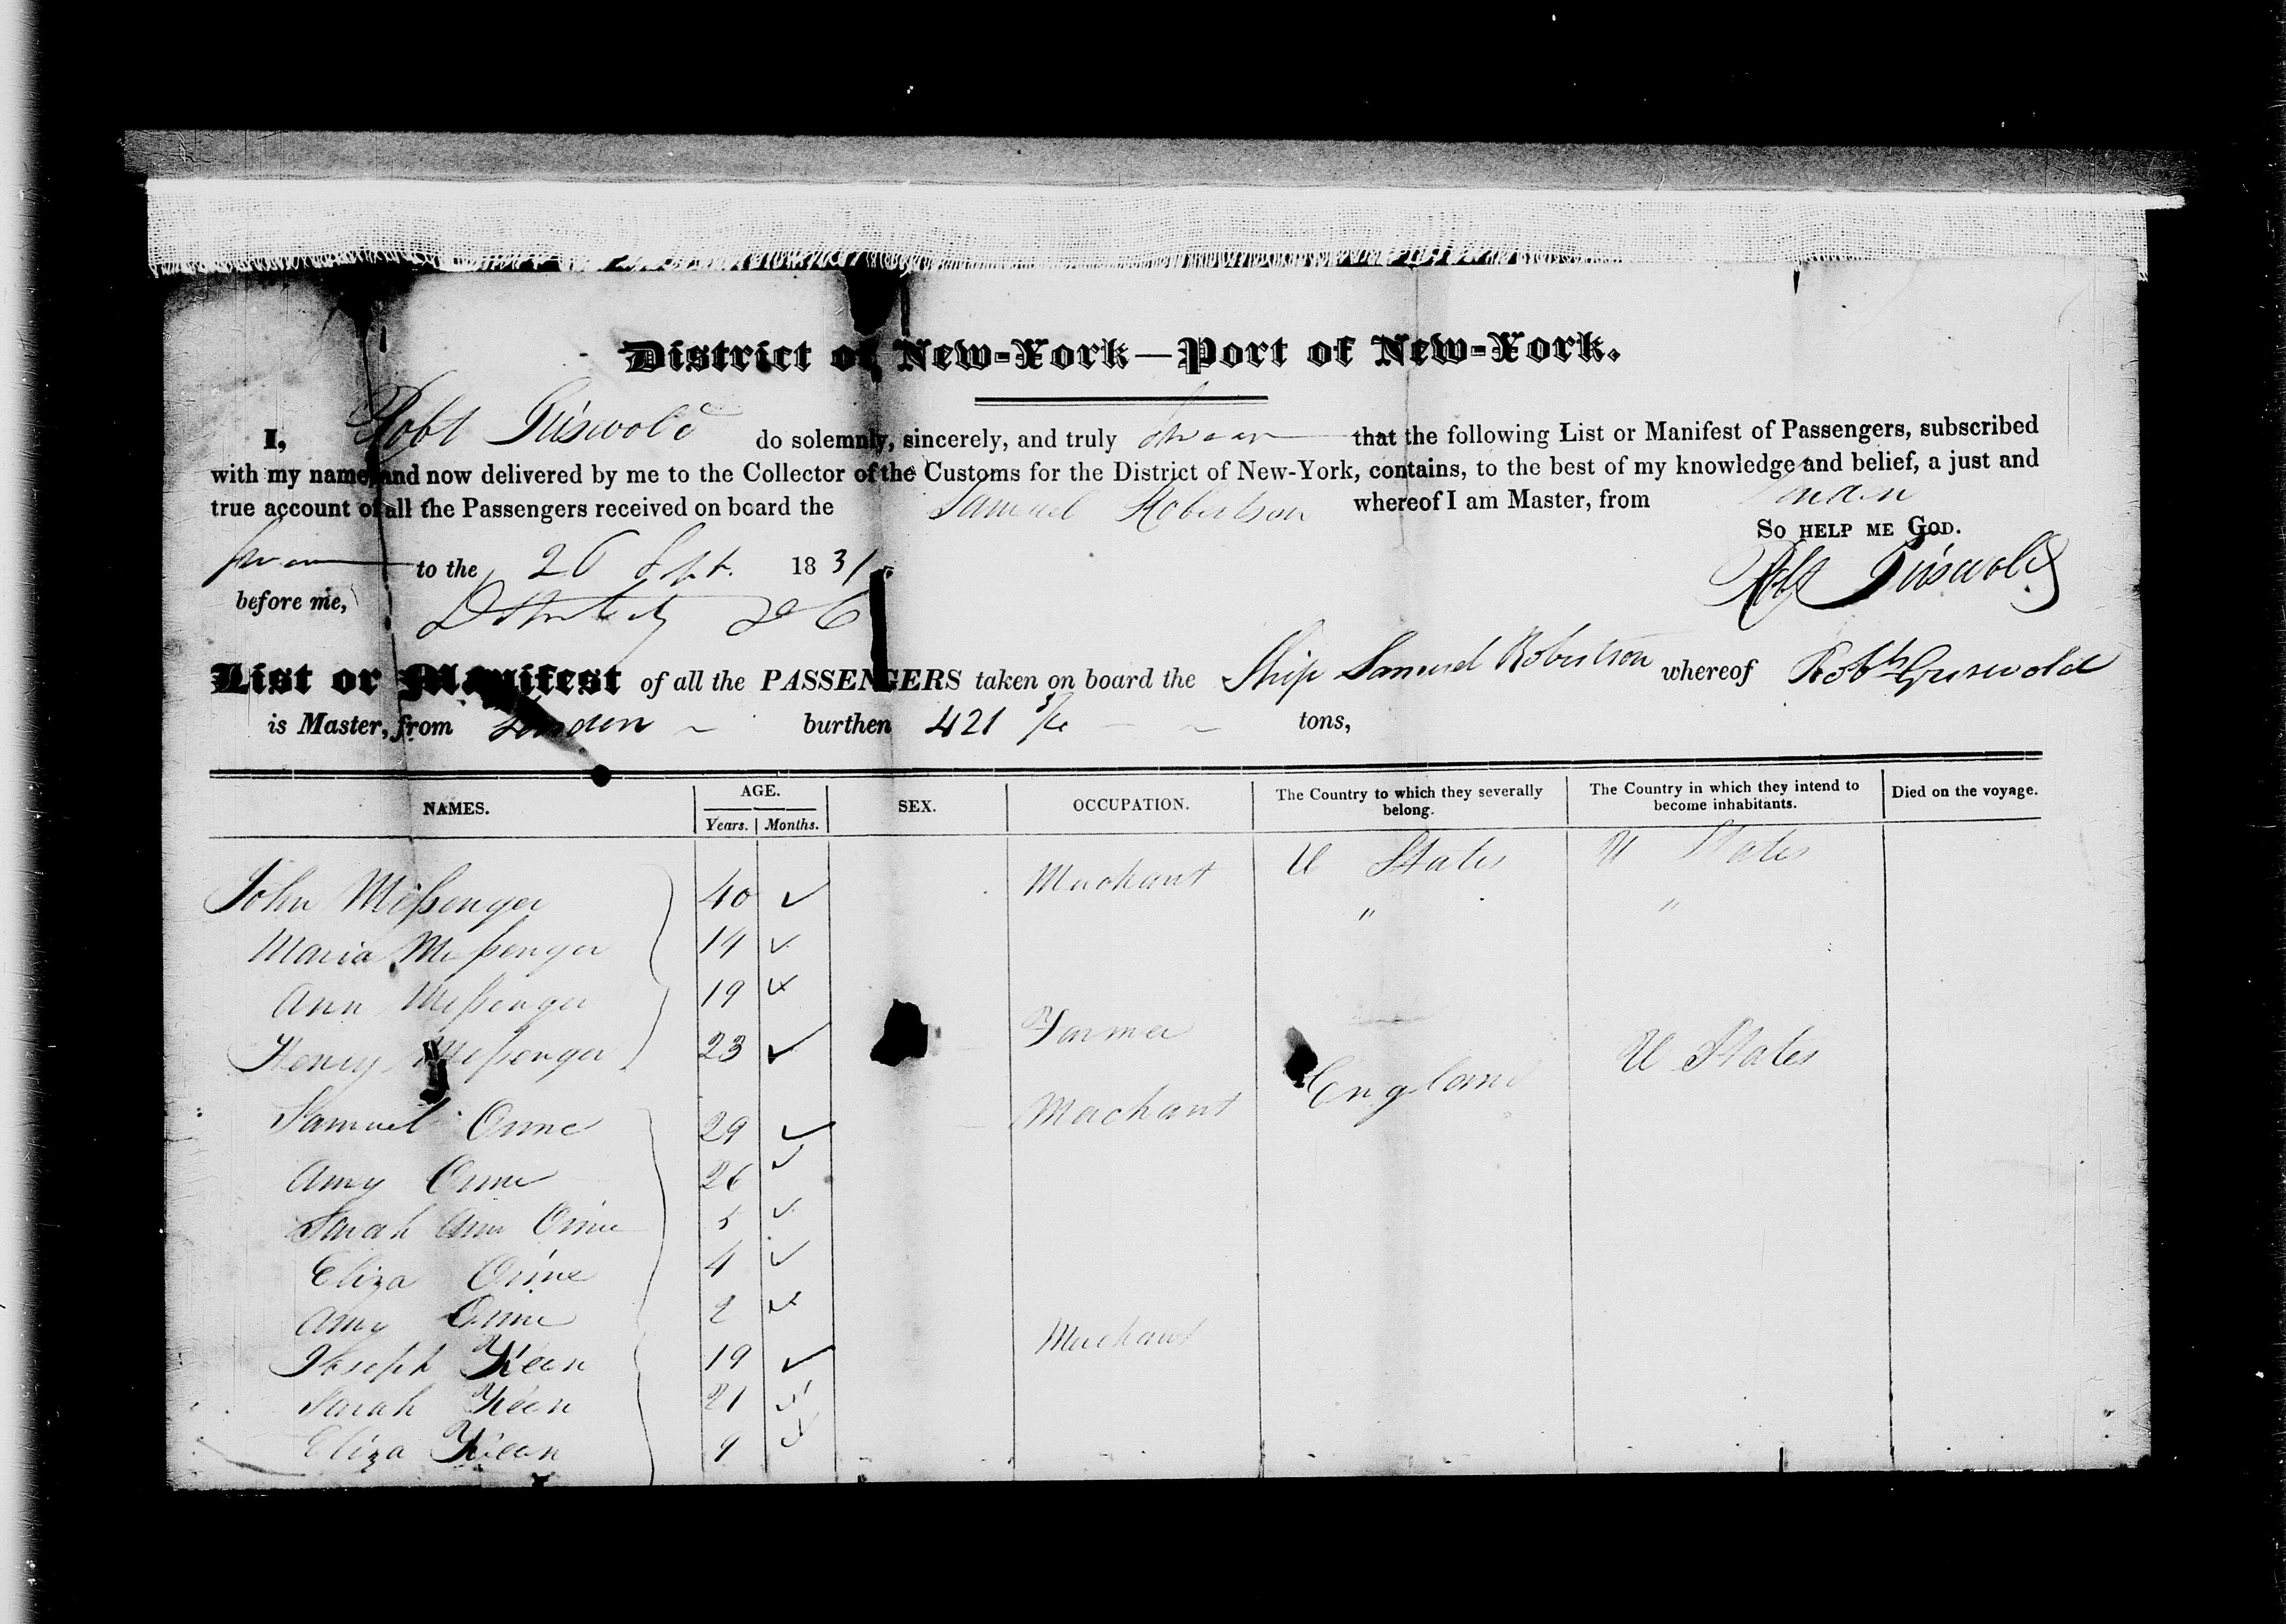 District of New-York—Port of New-York.
I, Robt Griswold do solemnly, sincerely, and truly swear that the following List or Manifest of Passengers, subscribed
with my name, and now delivered by me to the Collector of the Customs for the District of New-York, contains, to the best of my knowledge and belief, a just and
true account of all the Passengers received on board the Samuel Robertson whereof I am Master, from London
So help me God.
Sworn to the 26 Sept. 1831
Robt Griswold
before me,
List or Manifest of all the PASSENGERS taken on board the Ship Samuel Robertson whereof Robt Griswold
is Master, from London burthen 421 tons,
NAMES. AGE. SEX. OCCUPATION. The Country to which they severally belong. The Country in which they intend to become inhabitants. Died on the voyage.
Years. Months.
John Messenger 40 ✓ Merchant U States U States
Maria Messenger 14 ✓ " "
Ann Messenger 19 ✓
Henry Messenger 23 ✓ Farmer
Samuel Orme 29 ✓ Merchant England U States
Amy Orme 26 ✓
Sarah Ann Orme 5 ✓
Eliza Orme 4 ✓
Amy Orme 2 ✓
Joseph Kean 19 ✓ Merchant
Sarah Kean 21 ✓
Eliza Kean 9 ✓